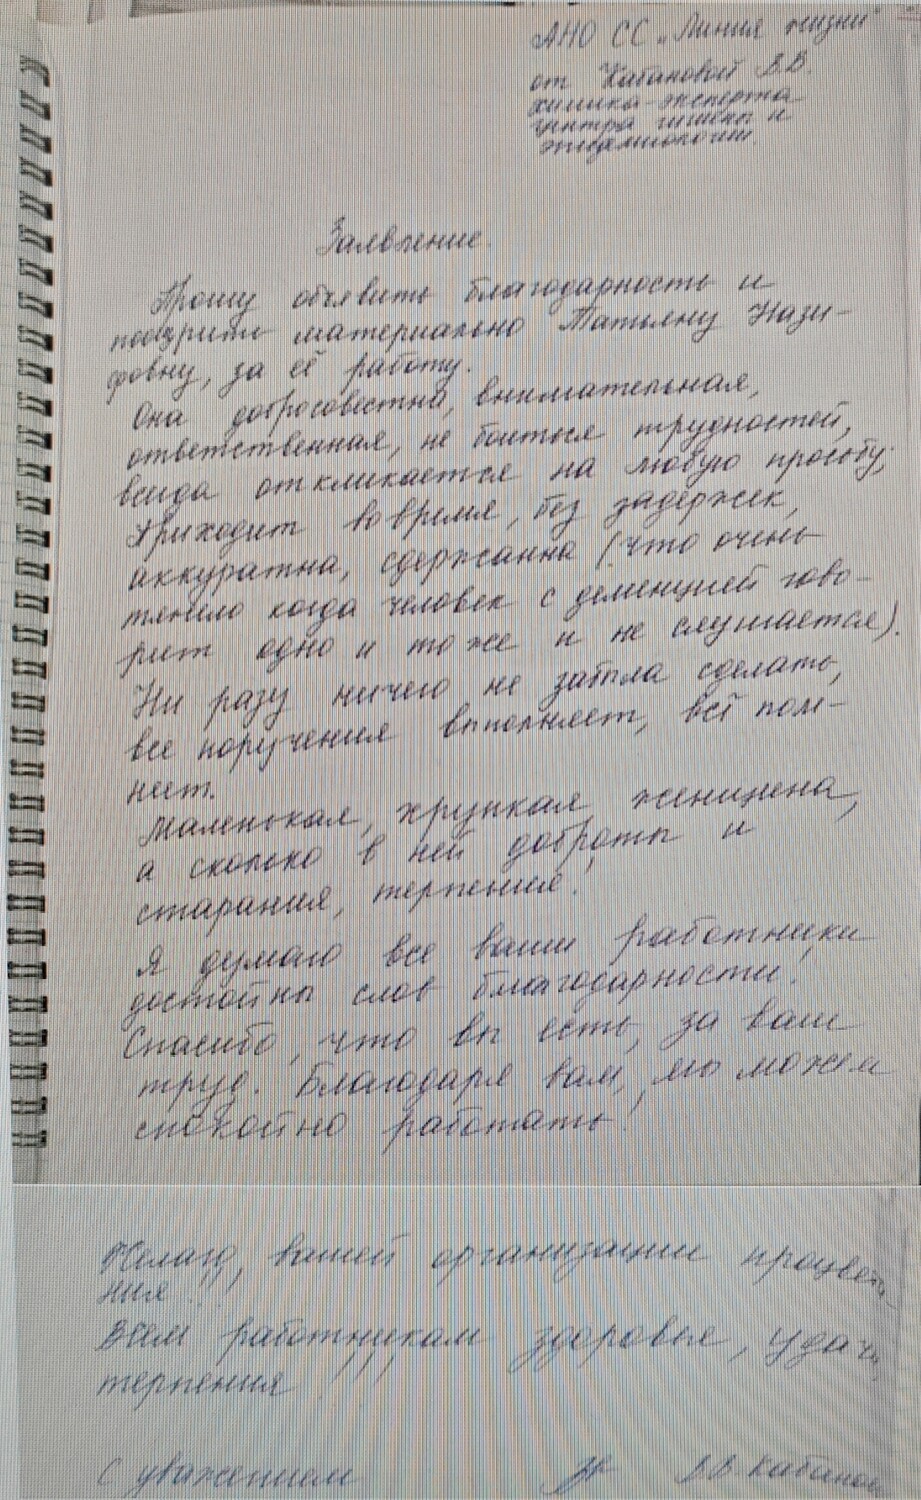 АНО СС „Линия жизни"
от Кабановой В.В.
химика-эксперта
центра гигиены и
эпидемиологии.
Заявление.
Прошу объявить благодарность и
поощрить материально Татьяну Нази-
фовну, за её работу.
Она добросовестна, внимательная,
ответственная, не боиться трудностей,
всегда откликается на любую просьбу,
Приходит вовремя, без задержек,
аккуратна, сдержанна (что очень
тяжело когда человек с деменцией гово-
рит одно и тоже и не слушается).
Ни разу ничего не забыла сделать,
все поручения выполняет, всё пом-
нит.
Маленькая, хрупкая женщина,
а сколько в ней доброты и
старания, терпения!
Я думаю все ваши работники
достойны слов благодарности!
Спасибо, что вы есть, за ваш
труд. Благодаря вам, мы можем
спокойно работать!
Желаю, вашей организации процвета-
ния!!!
Всем работникам здоровье, удачи,
терпения!!!
С уважением В.В. Кабанова